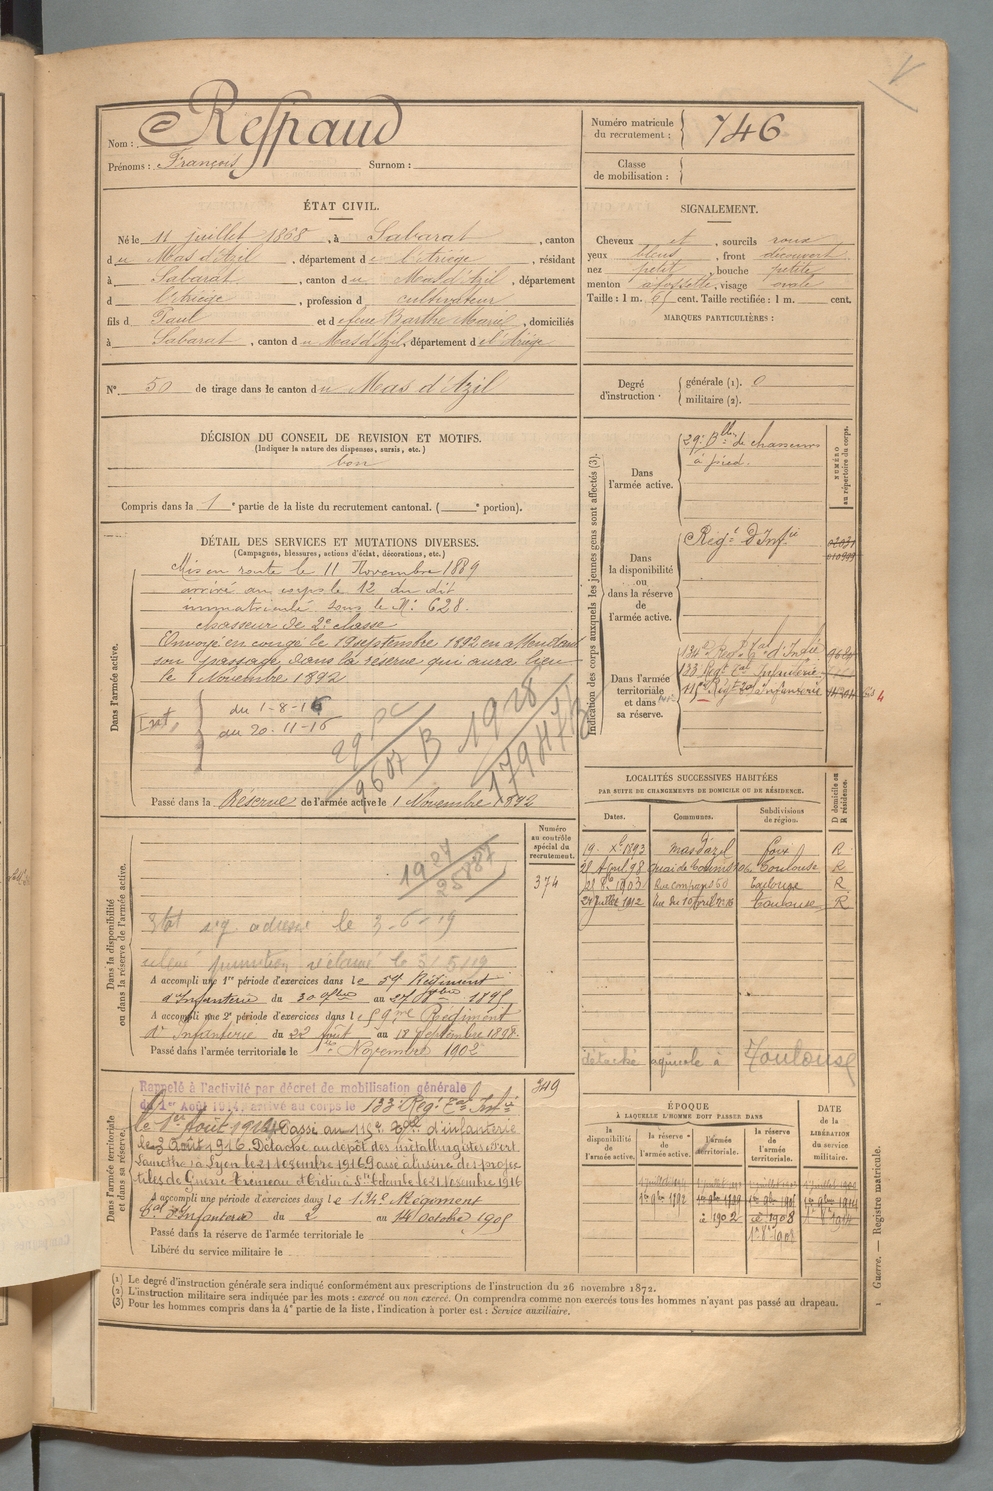 Nom : Respaud
Prénoms : François Surnom :
Numéro matricule du recrutement : 746
Classe de mobilisation :
ÉTAT CIVIL.
Né le 11 juillet 1868, à Sabarat, canton
du Mas d'Azil, département de l'Ariège, résidant
à Sabarat, canton du Mas d'Azil, département
d l'Ariège, profession d cultivateur
fils d Paul et de feue Barthe Marie, domiciliés
à Sabarat, canton du Mas d'Azil, département de l'Ariège
N° 50 de tirage dans le canton du Mas d'Azil
SIGNALEMENT.
Cheveux et, sourcils roux
yeux bleus, front découvert
nez petit, bouche petite
menton à fossette, visage ovale
Taille : 1 m. 65 cent. Taille rectifiée : 1 m. cent.
MARQUES PARTICULIÈRES :
Degré d'instruction.
générale (1). 0
militaire (2).
DÉCISION DU CONSEIL DE REVISION ET MOTIFS.
(Indiquer la nature des dispenses, sursis, etc.)
bon
Compris dans la 1e partie de la liste du recrutement cantonal. ( e portion).
DÉTAIL DES SERVICES ET MUTATIONS DIVERSES.
(Campagnes, blessures, actions d'éclat, décorations, etc.)
Dans l'armée active.
Mis en route le 11 Novembre 1889
arrivé au corps le 12 du dit
immatriculé sous le N° 628.
chasseur de 2e classe
Envoyé en congé le 19 septembre 1892 en attendant
son passage dans la réserve qui aura lieu
le 1 Novembre 1892
du 1-8-16
du 20-11-16
1928
179
Passé dans la Réserve de l'armée active le 1 Novembre 1892
Indication des corps auxquels les jeunes gens sont affectés (3).
NUMÉRO au répertoire du corps.
Dans l'armée active.
29e Blon de chasseurs
à pied.
Dans la disponibilité ou dans la réserve de l'armée active.
Régt D'Infie
Dans l'armée territoriale et dans sa réserve.
134e Régt Tal d'Infie
133 Régt Tal Infanterie
Régt Tal d'Infanterie
LOCALITÉS SUCCESSIVES HABITÉES
PAR SUITE DE CHANGEMENTS DE DOMICILE OU DE RÉSIDENCE.
Dates. Communes. Subdivisions de région. D domicile ou R résidence.
19 Xe 1893 Mas d'Azil Foix R
28 Avril 98 Quai de Tounis Toulouse R
1903 Rue Toulouse R
24 Juillet 1912 Rue du 10 Avril Toulouse R
détaché agricole à Toulouse
Dans la disponibilité ou dans la réserve de l'armée active.
Numéro au contrôle spécial du recrutement.
374
1927
25887
adresse le 3-6-19
A accompli une 1re période d'exercices dans le 59 Régiment
d'Infanterie du 30 au 27 1895
A accompli une 2e période d'exercices dans le 59me Régiment
d'Infanterie du 22 août au 18 Septembre 1898.
Passé dans l'armée territoriale le 1er Novembre 1902
Dans l'armée territoriale et dans sa réserve.
349
Rappelé à l'activité par décret de mobilisation générale
du 1er Août 1914, arrivé au corps le 133e Régt Tal Infie
le 1er Août 1914. Passé au d'infanterie
le 3 Août 1916. Détaché au dépôt des métallurgistes
à Lyon le 21 Novembre 1916 Passé à l'usine de projec
tiles de Guerre le 21 Novembre 1916
A accompli une période d'exercices dans le 134e Régiment
Tal d'Infanterie du 2 au 14 Octobre 1905
Passé dans la réserve de l'armée territoriale le
Libéré du service militaire le
ÉPOQUE
À LAQUELLE L'HOMME DOIT PASSER DANS
la disponibilité de l'armée active.
la réserve de l'armée active.
l'armée territoriale.
la réserve de l'armée territoriale.
DATE de la LIBÉRATION du service militaire.
1902
1908
(1) Le degré d'instruction générale sera indiqué conformément aux prescriptions de l'instruction du 26 novembre 1872.
(2) L'instruction militaire sera indiquée par les mots : exercé ou non exercé. On comprendra comme non exercés tous les hommes n'ayant pas passé au drapeau.
(3) Pour les hommes compris dans la 4e partie de la liste, l'indication à porter est : Service auxiliaire.
1 Guerre. — Registre matricule.